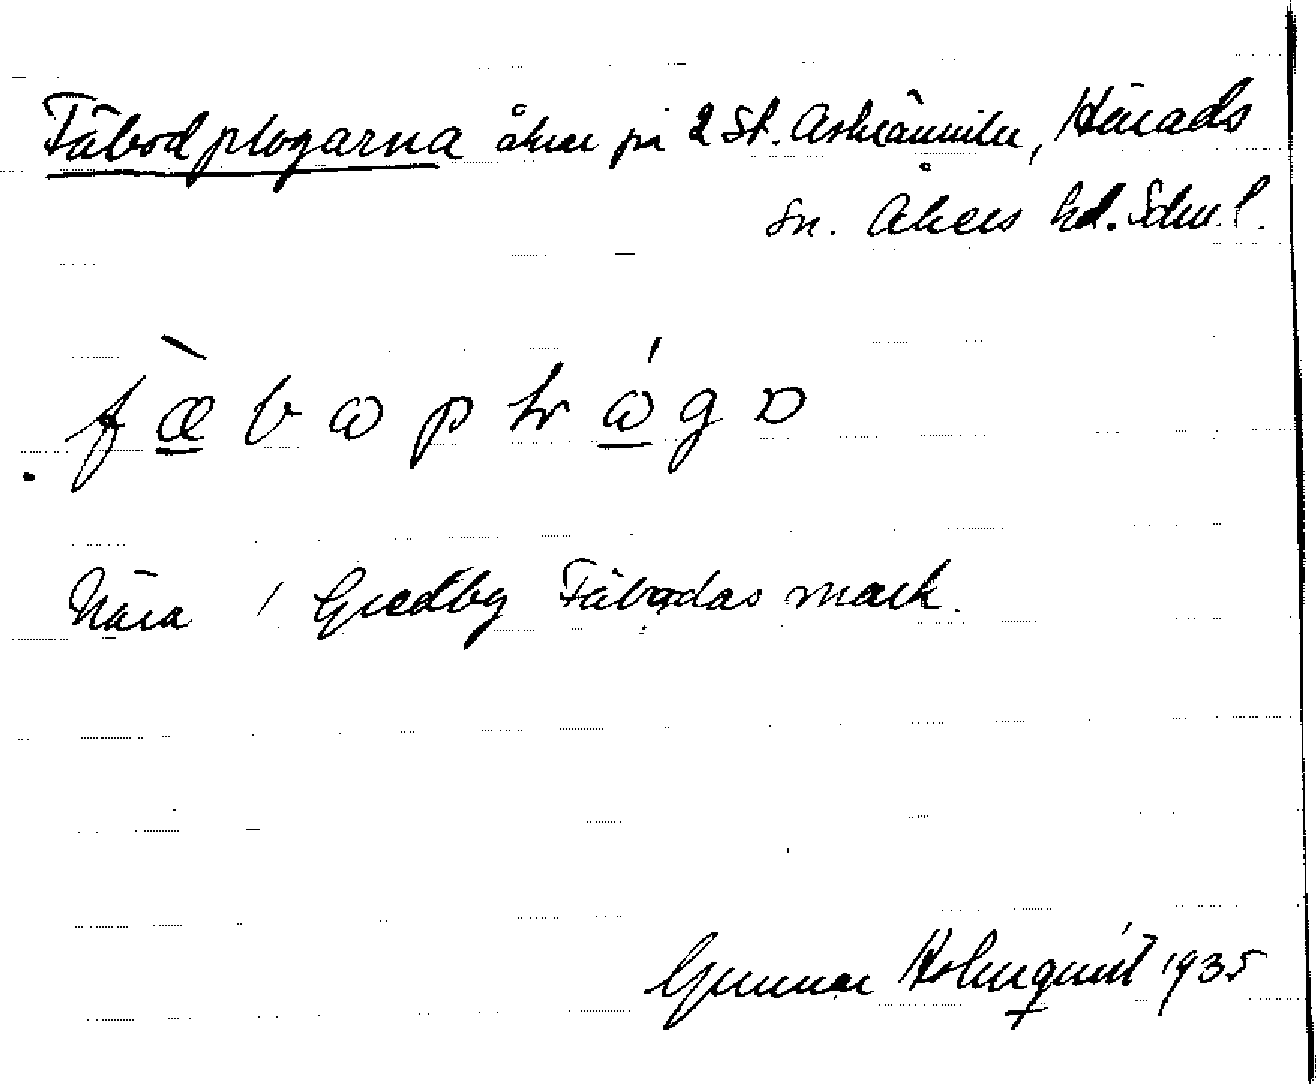 Fäbodplogarna åkrar på 2 St. Askrännilen, Härads
Sn. Åkers hd. Sdm. l.
fæ̀bωplωgα
Nära / Gredby Fäbodas mark.
Gunnar Holmquist 1935